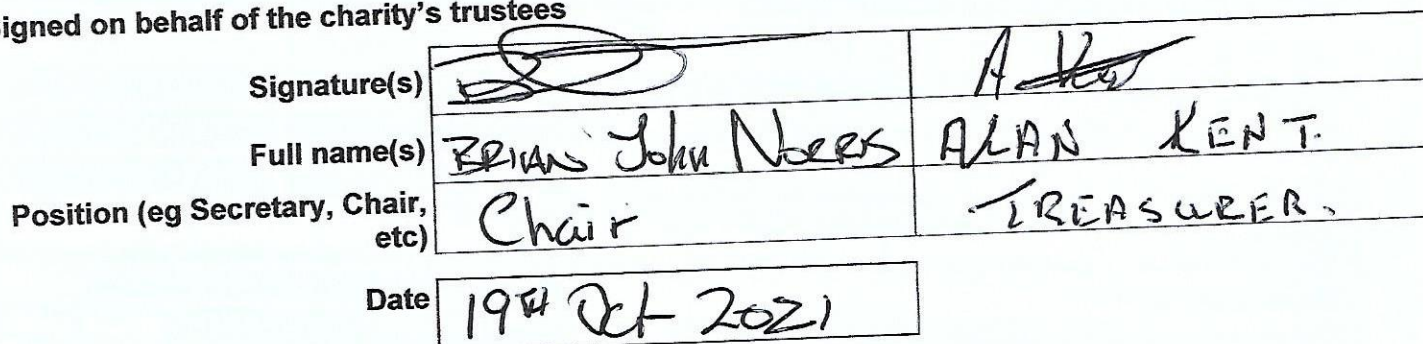 igned on behalf of the charity's trustees
Signature(s) A Kent
Full name(s) BRIAN John NORRIS ALAN KENT.
Position (eg Secretary, Chair, etc) Chair TREASURER.
Date 19TH Oct 2021